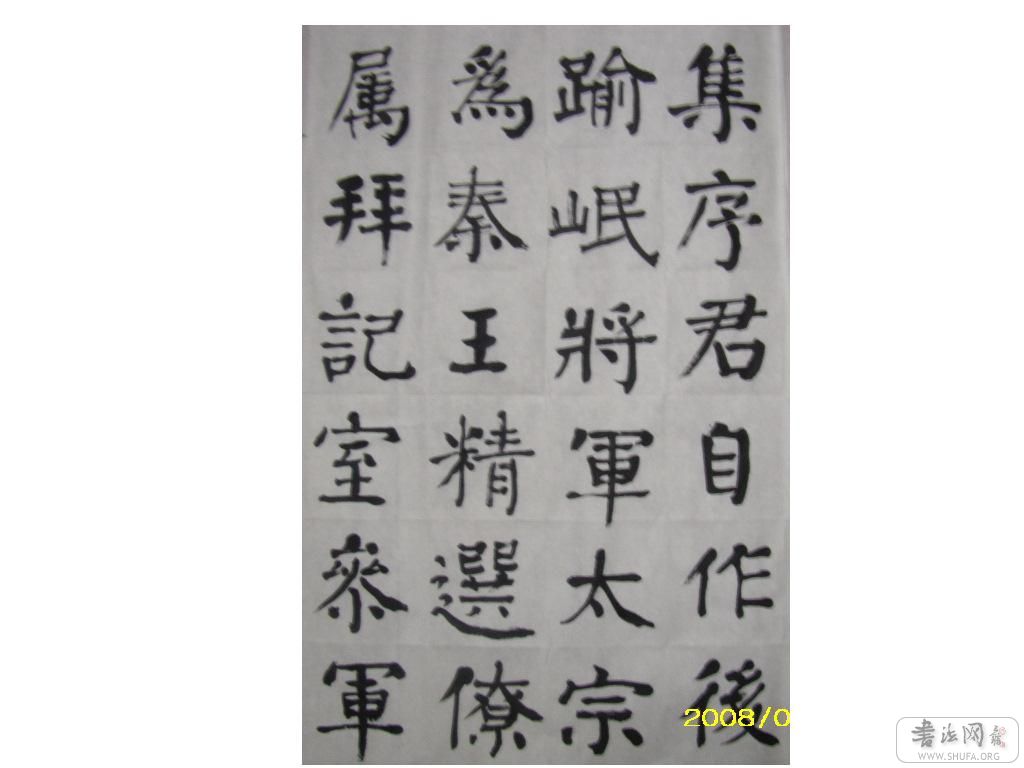 集序君自作後
踰岷將軍太宗
爲秦王精選僚
属拜記室叅軍
2008/0
書法网
WWW.SHUFA.ORG